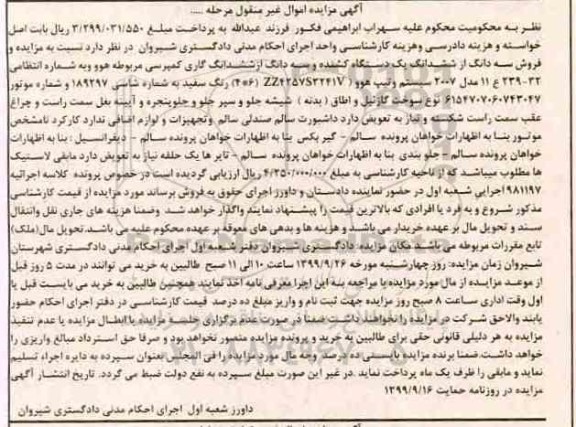 آگهی مزایده اموال غیر منقول مرحله .....
نظر به محکومیت محکوم علیه سهراب ابراهیمی فکور فرزند عبدالله به پرداخت مبلغ ۳/۲۹۹/۰۳۱/۵۵۰ ریال بابت اصل
خواسته و هزینه دادرسی وهزینه کارشناسی واحد اجرای احکام مدنی دادگستری شیروان در نظر دارد نسبت به مزایده و
فروش سه دانگ از ششدانگ یک دستگاه کشنده و سه دانگ ازششدانگ گاری کمپرسی مربوطه هوو وبه شماره انتظامی
۳۲-۲۳۹ ع ۱۱ مدل ۲۰۰۷ سیستم وتیپ هوو ( ZZ۴۲۵۷S۳۲۴۱V (۴*۶) رنگ سفید به شماره شاسی ۱۸۹۲۹۷ و شماره موتور
۶۱۵۴۷۰۷۰۶۰۷۴۳۰۴۷ نوع سوخت گازئیل و اطاق ( بدنه ) شیشه جلو و سپر جلو وجلوپنجره و آیینه بغل سمت راست و چراغ
عقب سمت راست شکسته و نیاز به تعویض دارد داشبورت سالم صندلی سالم وتجهیزات و لوازم اضافی ندارد کارکرد نامشخص
موتور بنا به اظهارات خواهان پرونده سالم - گیر بکس بنا به اظهارات خواهان پرونده سالم - دیفرانسیل : بنا به اظهارات
خواهان پرونده سالم - جلو بندی بنا به اظهارات خواهان پرونده سالم - تایر ها یک حلقه نیاز به تعویض دارد مابقی لاستیک
ها مطلوب میباشد که از ناحیه کارشناسی به مبلغ ۴/۲۵۰/۰۰۰/۰۰۰ ریال ارزیابی گردیده است در خصوص پرونده کلاسه اجرائیه
۹۸۱۱۹۷ اجرایی شعبه اول در حضور نماینده دادستان و داورز اجرای حقوق به فروش برساند مورد مزایده از قیمت کارشناسی
مذکور شروع و به فرد یا افرادی که بالاترین قیمت را پیشنهاد نمایند واگذار خواهد شد وضمنا هزینه های جاری نقل وانتقال
سند و تحویل مال بر عهده خریدار می باشد و هزینه ها و بدهی های معوقه بر عهده محکوم علیه می باشد.تحویل مال(ملک)
تابع مقررات مربوطه می باشد مکان مزایده: دادگستری شیروان دفتر شعبه اول اجرای احکام مدنی دادگستری شهرستان
شیروان زمان مزایده: روز چهارشنبه مورخه ۱۳۹۹/۹/۲۶ ساعت ۱۰ الی ۱۱ صبح طالبین به خرید می توانند در مدت ۵ روز قبل
از موعد مزایده از مال مورد مزایده با مراجعه بنه این اجرا معرفی نامه اخذ نمایند همچنین طالبین به خرید می بایست قبل یا
اول وقت اداری ساعت ۸ صبح روز مزایده جهت ثبت نام و واریز مبلغ ده درصد قیمت کارشناسی در دفتر اجرای احکام حضور
یابند والاحق شرکت در مزایده را نخواهند داشت ضمناً در صورت عدم برگزاری جلسه مزایده یا ابطال مزایده یا عدم تنفیذ
مزایده به هر دلیلی قانونی حقی برای طالبین به خرید و پرونده مزایده متصور نخواهد بود و صرفا حق استرداد مبالغ واریزی را
خواهد داشت.ضمنا برنده مزایده بایستی ده درصد وجه مال مورد مزایده را فی المجلس بعنوان سپرده به دایره اجراء تسلیم
نماید و مابقی را ظرف یک ماه پرداخت نماید .در غیر این صورت مبلغ سپرده به نفع دولت ضبط می گردد. تاریخ انتشار آگهی
مزایده در روزنامه حمایت ۱۳۹۹/۹/۱۶
داورز شعبه اول اجرای احکام مدنی دادگستری شیروان